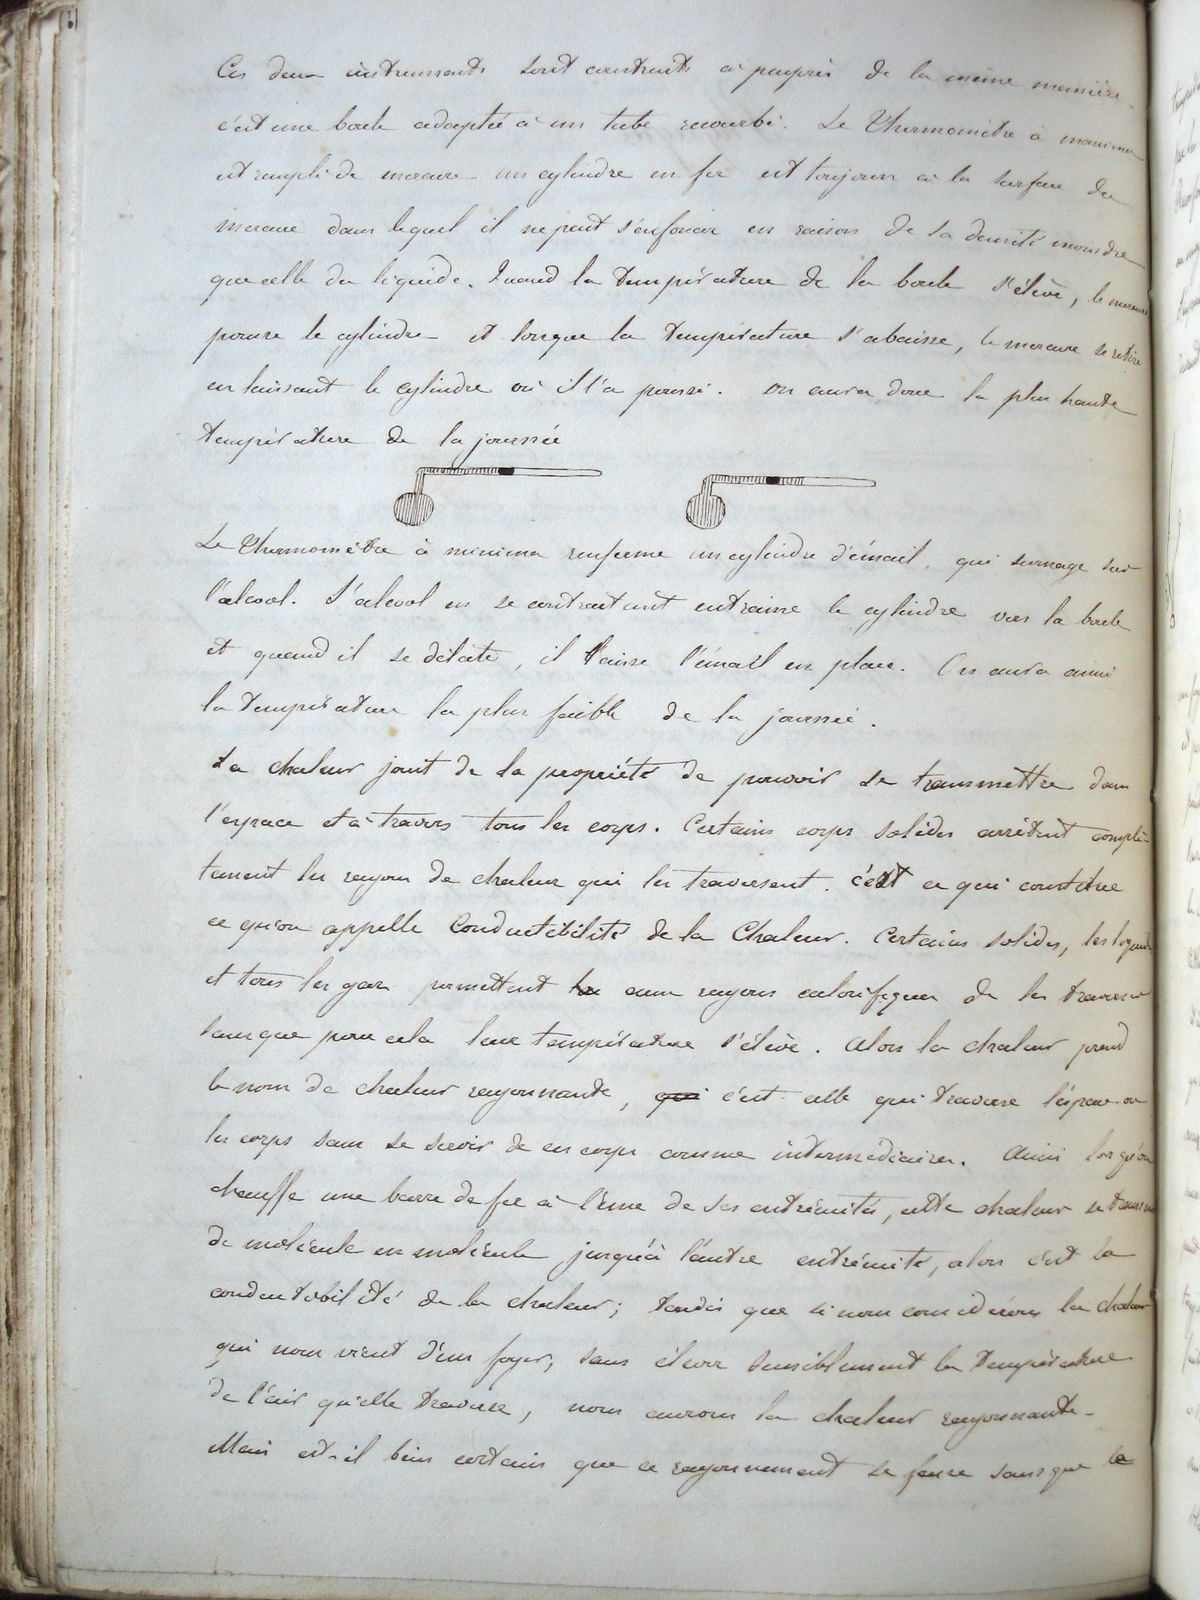 Ces deux instruments sont construits à peuprès de la même manière.
c'est une boule adaptée à un tube recourbé. Le Thermomètre à maxima
est rempli de mercure un cylindre en fer est toujours à la surface du
mercure dans lequel il ne peut s'enfoncer en raison de sa densité moindre
que celle du liquide. Quand la température de la boule s'élève, le mercure
pousse le cylindre et lorsque la température s'abaisse, le mercure se retire
en laissant le cylindre où il l'a poussé. On aura donc la plus haute
température de la journée
Le Thermomètre à minima renferme un cylindre d'émail, qui surnage sur
l'alcool. L'alcool en se contractant entraine le cylindre vers la boule
et quand il se dilate, il laisse l'émail en place. On aura ainsi
la température la plus faible de la journée.
La chaleur jouit de la propriété de pouvoir se transmettre dans
l'espace et à travers tous les corps. Certains corps solides arrêtent complè-
tement les rayons de chaleur qui les traversent. c'est ce qui constitue
ce qu'on appelle Conductibilité de la Chaleur. Certains solides, les liquides
et tous les gaz permettent aux rayons calorifiques de les traverser
sans que pour cela leur température s'élève. Alors la chaleur prend
le nom de chaleur rayonnante, qui c'est celle qui traverse l'espace ou
les corps sans se servir de ces corps comme intermédiaires. Ainsi lorsqu'on
chauffe une barre de fer à l'une de ses extrémités, cette chaleur se
de molécule en molécule jusqu'à l'autre extrémité, alors c'est la
conductibilité de la chaleur; tandis que si nous considérons la chaleur
qui nous vient d'un foyer, sans élever sensiblement la température
de l'air qu'elle traverse, nous aurons la chaleur rayonnante.
Mais est-il bien certain que ce rayonnement se fasse sans que le